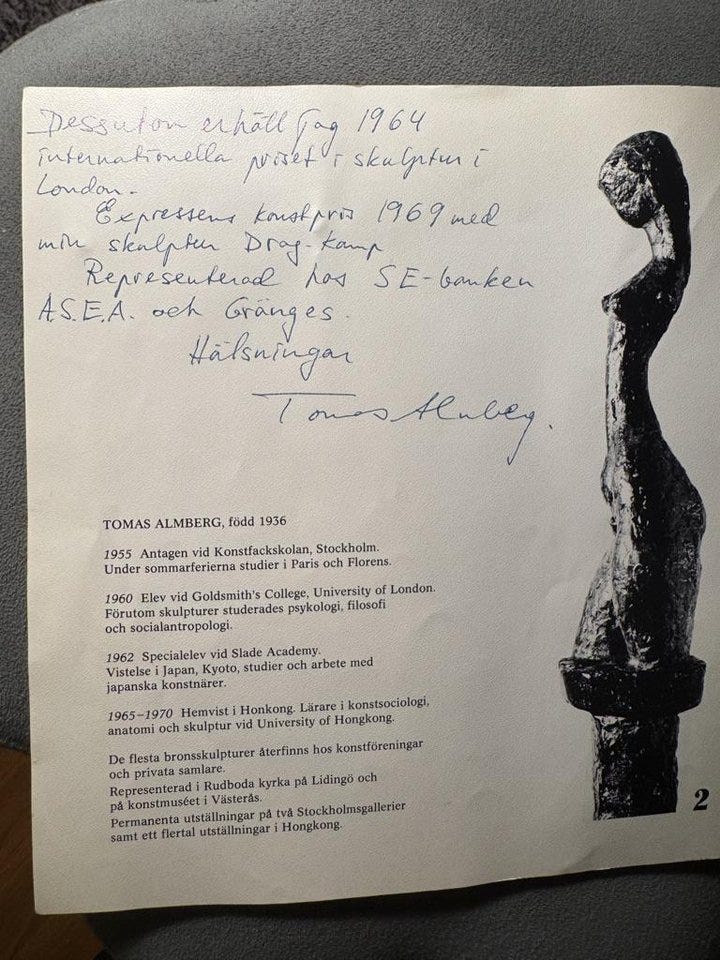 Dessutom erhöll jag 1964
internationella priset i skulptur i
London.
Expressens konstpris 1969 med
min skulptur Drag-kamp
Representerad hos SE-banken
A.S.E.A. och Gränges.
Hälsningar
Tomas Almberg.
TOMAS ALMBERG, född 1936
1955 Antagen vid Konstfackskolan, Stockholm.
Under sommarferierna studier i Paris och Florens.
1960 Elev vid Goldsmith's College, University of London.
Förutom skulpturer studerades psykologi, filosofi
och socialantropologi.
1962 Specialelev vid Slade Academy.
Vistelse i Japan, Kyoto, studier och arbete med
japanska konstnärer.
1965–1970 Hemvist i Honkong. Lärare i konstsociologi,
anatomi och skulptur vid University of Hongkong.
De flesta bronsskulpturer återfinns hos konstföreningar
och privata samlare.
Representerad i Rudboda kyrka på Lidingö och
på konstmuséet i Västerås.
Permanenta utställningar på två Stockholmsgallerier
samt ett flertal utställningar i Hongkong.
2